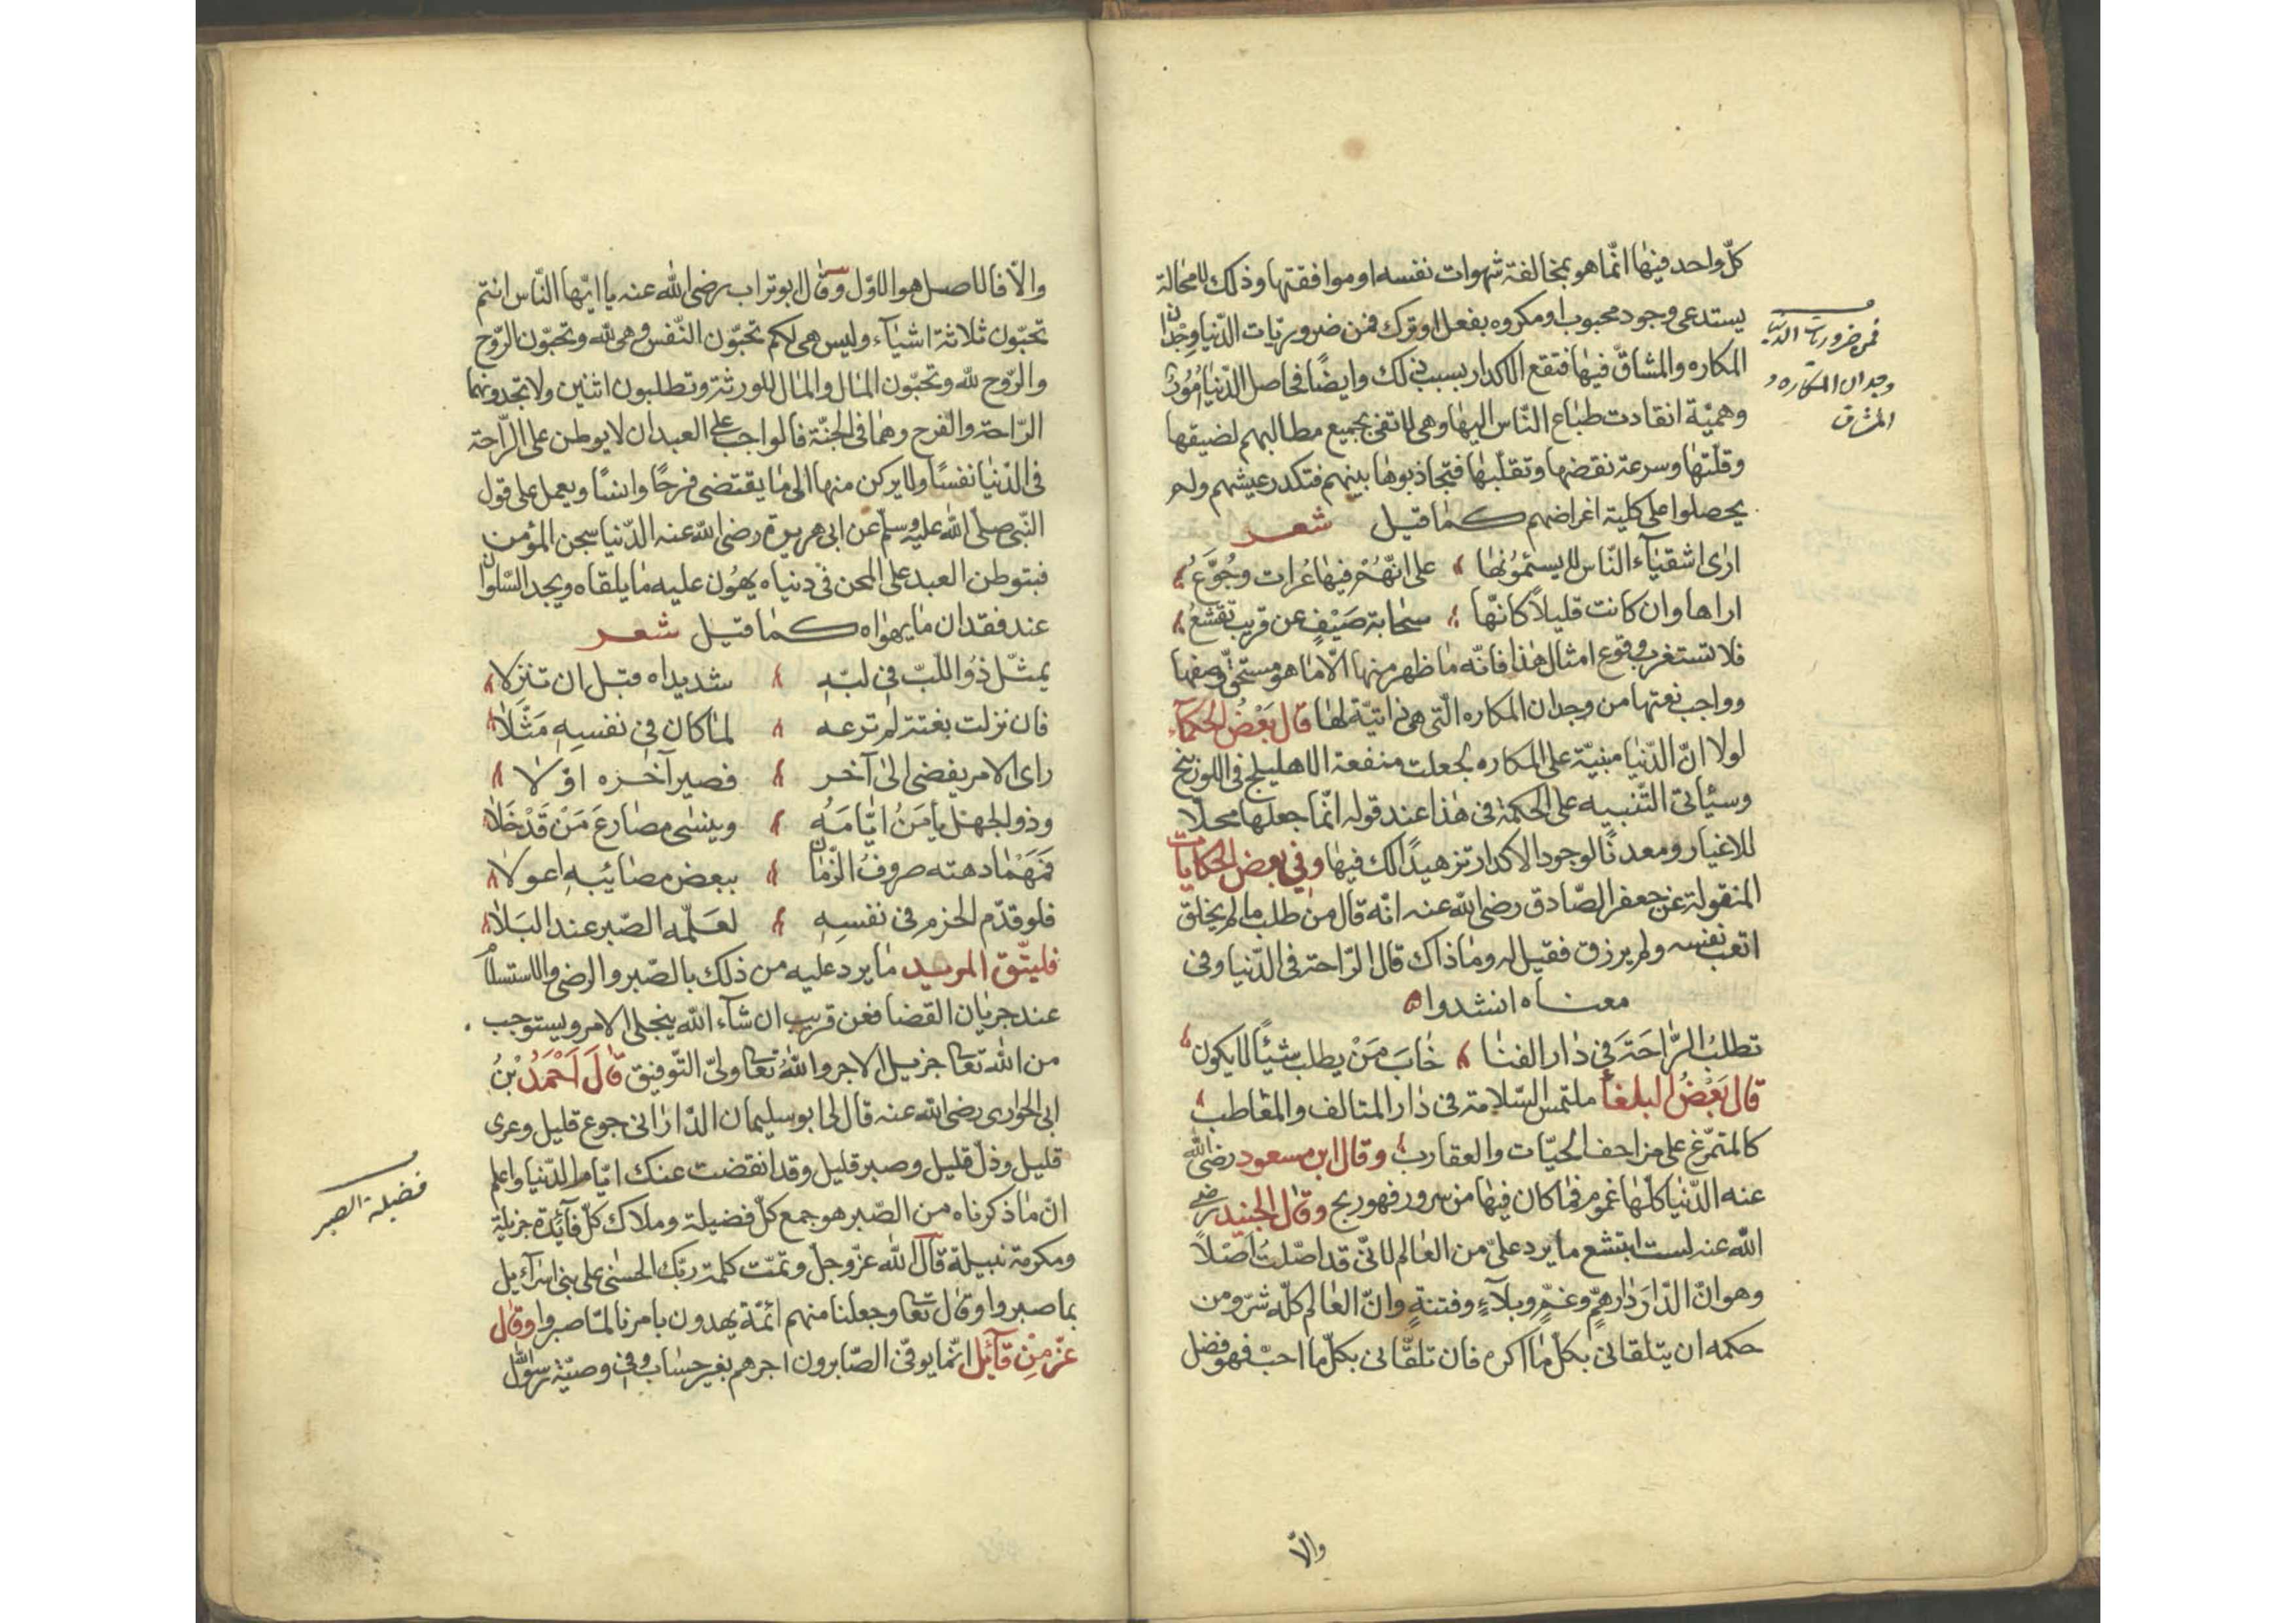 كلّ واحد فيها انّما هو بمخالفة شهوات نفسه او موافقتها وذلك لا محالة
يستدعى وجود محبوب او مكروه بفعل او ترك فمن ضروريات الدّنيا وجدان
المكاره والمشاقّ فيها فتقع الاكدار بسبب ذلك وايضًا فحاصل الدّنيا امُور
وهميّة انقادت طباع النّاس اليها وهى لا تفى بجميع مطالبهم لضيقها
وقلّتها وسرعة نقضها وتقلّبها فتجاذبوها بينهم فتكدر عيشهم ولم
يحصلوا على كلية اغراضهم كما قيل شعر
ارى اشقيآء النّاس لا يسئمُونها على انّهُم فيها عُرات وجُوَّعُ
اراها وان كانت قليلاً كانّها سحابة صَيْفٍ عن قريب تقشعُ
فلا تستغرب وقوع امثال هذا فانّه ما ظهر منها الّا ما هو مستحقّ وصفها
وواجب نعتها من وجدان المكاره الّتى هى ذاتيّة لها قال بَعْضُ الحكمآء
لولا انّ الدّنيا مبنيّة على المكاره لجعلت منفعة الاهليلج فى اللوزينج
وسيأتى التّنبيه على الحكمة فى هذا عند قوله انّما جعلها محلّا
للاغيار ومعدنًا لوجود الاكدار تزهيدًا لك فيها وفى بعض الحكايات
المنقولة عن جعفر الصّادق رضى الله عنه انّه قال من طلب ما لم يخلق
اتعب نفسه ولم يرزق فقيل له وما ذاك قال الرّاحة فى الدّنيا وفى
معناه انشدوا
تطلبُ الرَّاحَةَ فى دار الفنا خابَ مَنْ يطلب شيئًا لا يكون
قال بَعْضُ البلغآ ملتمس السّلامة فى دار المتالف والمعاطب
كالمتمرّغ على مزاحف الحيّات والعقارب وقال ابن مسعود رضى الله
عنه الدّنيا كلّها غموم فما كان فيها من سرور فهو ربح وقال الجنيد رضى
الله عنه لست ابتشع ما يرد علىّ من العالم لانّى قد اصّلتُ اصْلاً
وهو انّ الدّارَ دار همٍّ وغمٍّ وبلآءٍ وفتنةٍ وانّ العالم كلّه شرّ ومن
حكمه ان يتلقانى بكلّ ما اكره فان تلقّانى بكلّ ما احبّ فهو فضل
والّا
فمن ضروريات الدنيا
وجدان المكاره و
المشاق
والّا فالاصل هو الاوّل وقال ابو تراب رضى الله عنه يا ايّها النّاس انتم
تحبّون ثلاثة اشيآء وليس هى لكم تحبّون النّفس وهى لله وتحبّون الرّوح
والرّوح لله وتحبّون المال والمال للورثة وتطلبون اثنين ولا تجدونهما
الرّاحة والفرح وهما فى الجنّة فالواجب على العبد ان لا يوطن على الرّاحة
فى الدّنيا نفسًا ولا يركن منها الى ما يقتضى فرحًا وانسًا ويعمل على قول
النّبى صلّى الله عليه وسلّم عن ابى هريرة رضى الله عنه الدّنيا سجن المؤمن
فبتوطن العبد على المحن فى دنياه يهُون عليه ما يلقاه ويجد السّلوان
عند فقدان ما يهواه كما قيل شعر
يمثّل ذُو اللّبّ فى لبّهِ شديداه قبل ان تنزلا
فان نزلت بغتة لم ترعه لما كان فى نفسِهِ مَثَّلا
راى الامر يفضى الى آخر فصير آخره اوّلا
وذو الجهل يأمَنُ ايّامَهُ وينسى مصارعَ مَنْ قَدْ خَلا
فمَهْما دهته صروفُ الزّمان ببعض مصائبِهِ اعولا
فلو قدّم الحزم فى نفسِهِ لعَلّمه الصّبر عند البَلا
فليتّق المريد ما يرد عليه من ذلك بالصّبر والرضى والاستسلام
عند جريان القضا فعن قريب ان شآء الله ينجلى الامر ويستوجب
من الله تعا جزيل الاجر واللهُ تعا ولىّ التّوفيق قالَ اَحْمَدُ بْنُ
ابى الحوارى رضى الله عنه قال لى ابو سليمان الدّارانى جوع قليل وعرى
قليل وذلّ قليل وصبر قليل وقد انقضت عنك ايّام الدّنيا واعلم
انّ ما ذكرناه من الصّبر هو جمع كلّ فضيلة وملاك كلّ فآئدة جزيلة
ومكرمة نبيلة قال الله عزّ وجلّ وتمّت كلمة ربّك الحسنى على بنى اسرآءيل
بما صبروا وقال تعا وجعلنا منهم ائمّة يهدون بامرنا لمّا صبروا وقال
عزّ مِنْ قآئل انّما يوفّى الصّابرون اجرهم بغير حساب وفى وصيّة رسول الله
فضيلة الصبر